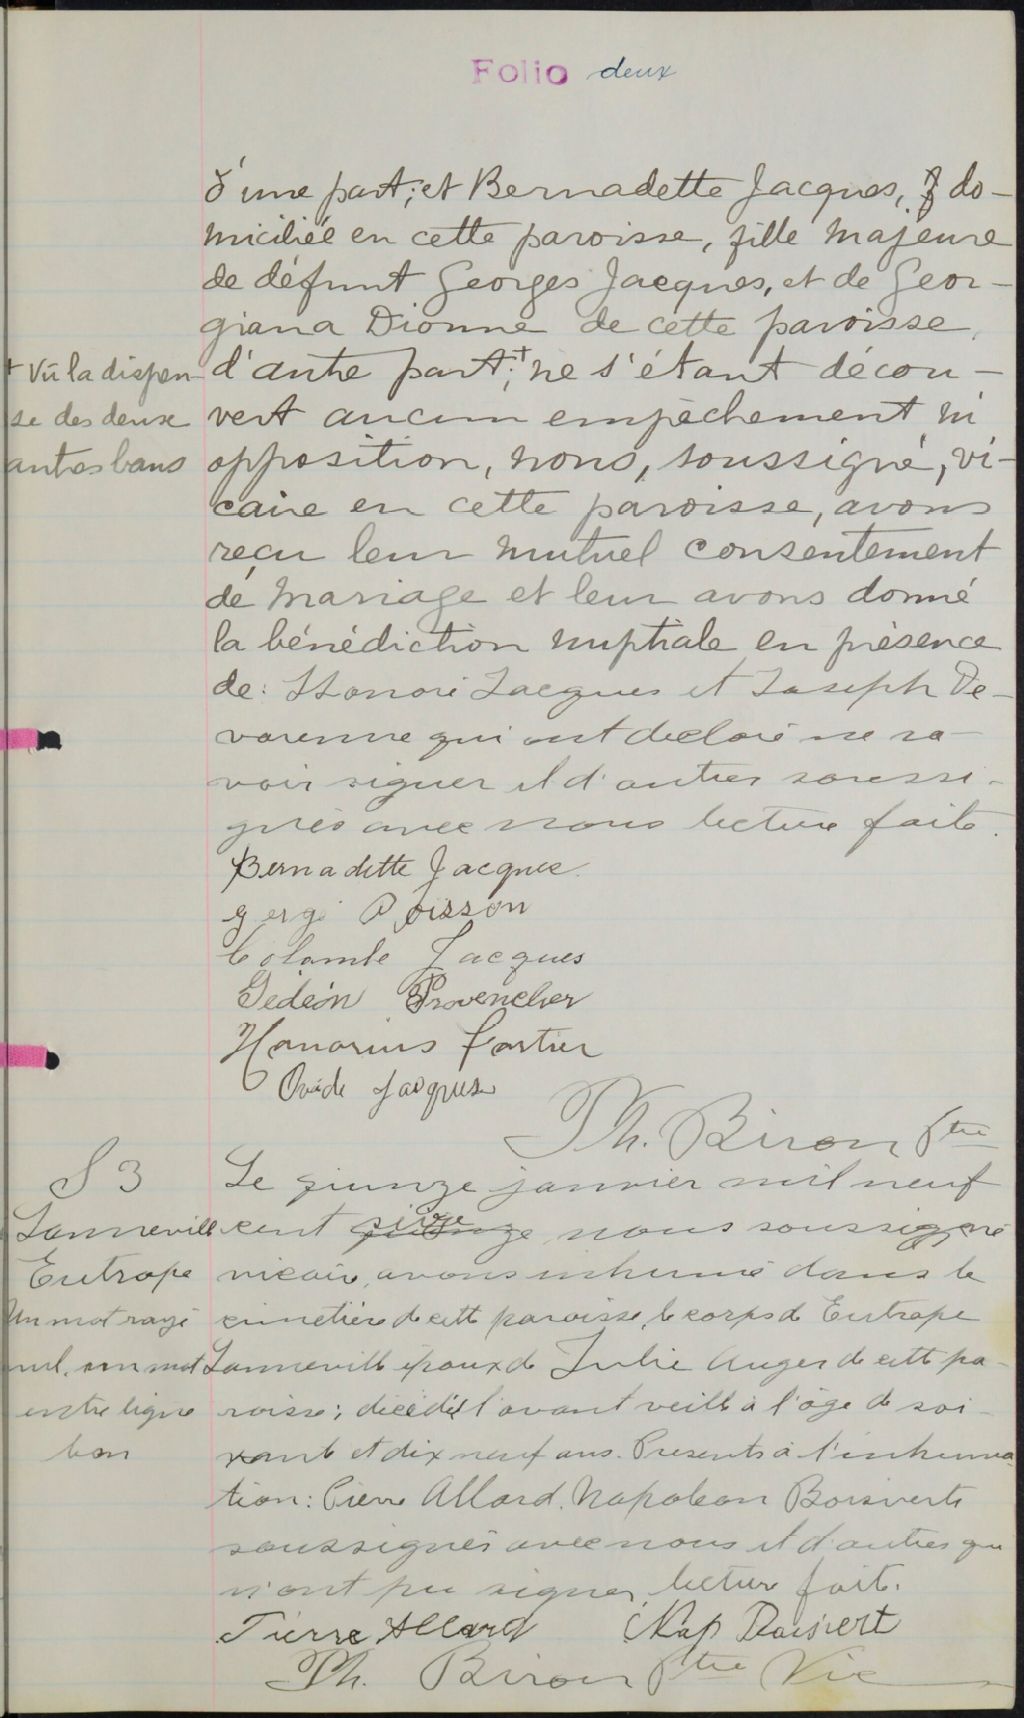 Folio deux
d'une part; et Bernadette Jacques, do-
miciliée en cette paroisse, fille majeure
de défunt Georges Jacques, et de Geor-
giana Dionne de cette paroisse,
d'autre part;+ ne s'étant décou-
vert aucun empêchement ni
opposition, nous, soussigné, vi-
caire en cette paroisse, avons
reçu leur mutuel consentement
de mariage et leur avons donné
la bénédiction nuptiale en présence
de: Honoré Jacques et Joseph De-
varenne qui ont déclaré ne sa-
voir signer et d'autres soussi-
gnés avec nous lecture faite.
+ Vu la dispen-
se des deux
autres bans
Bernadette Jacques
Poisson
Colombe Jacques
Gédéon Provencher
Honorius Cartier
Ovide Jacques
Ph. Biron Ptre
S 3
Lanneville
Eutrope
Un mot rayé
nul, un mot
entre ligne
bon
Le quinze janvier mil neuf
cent quinze seize nous soussigné
vicaire, avons inhumé dans le
cimetière de cette paroisse, le corps de Eutrope
Lanneville époux de Julie Auger de cette pa-
roisse; décédé l'avant veille à l'âge de soi-
xante et dix neuf ans. Présents à l'inhuma-
tion: Pierre Allard, Napoléon Boisvert
soussignés avec nous et d'autres qui
n'ont pu signer, lecture faite.
Pierre Allard Nap Boisvert
Ph. Biron Ptre Vic